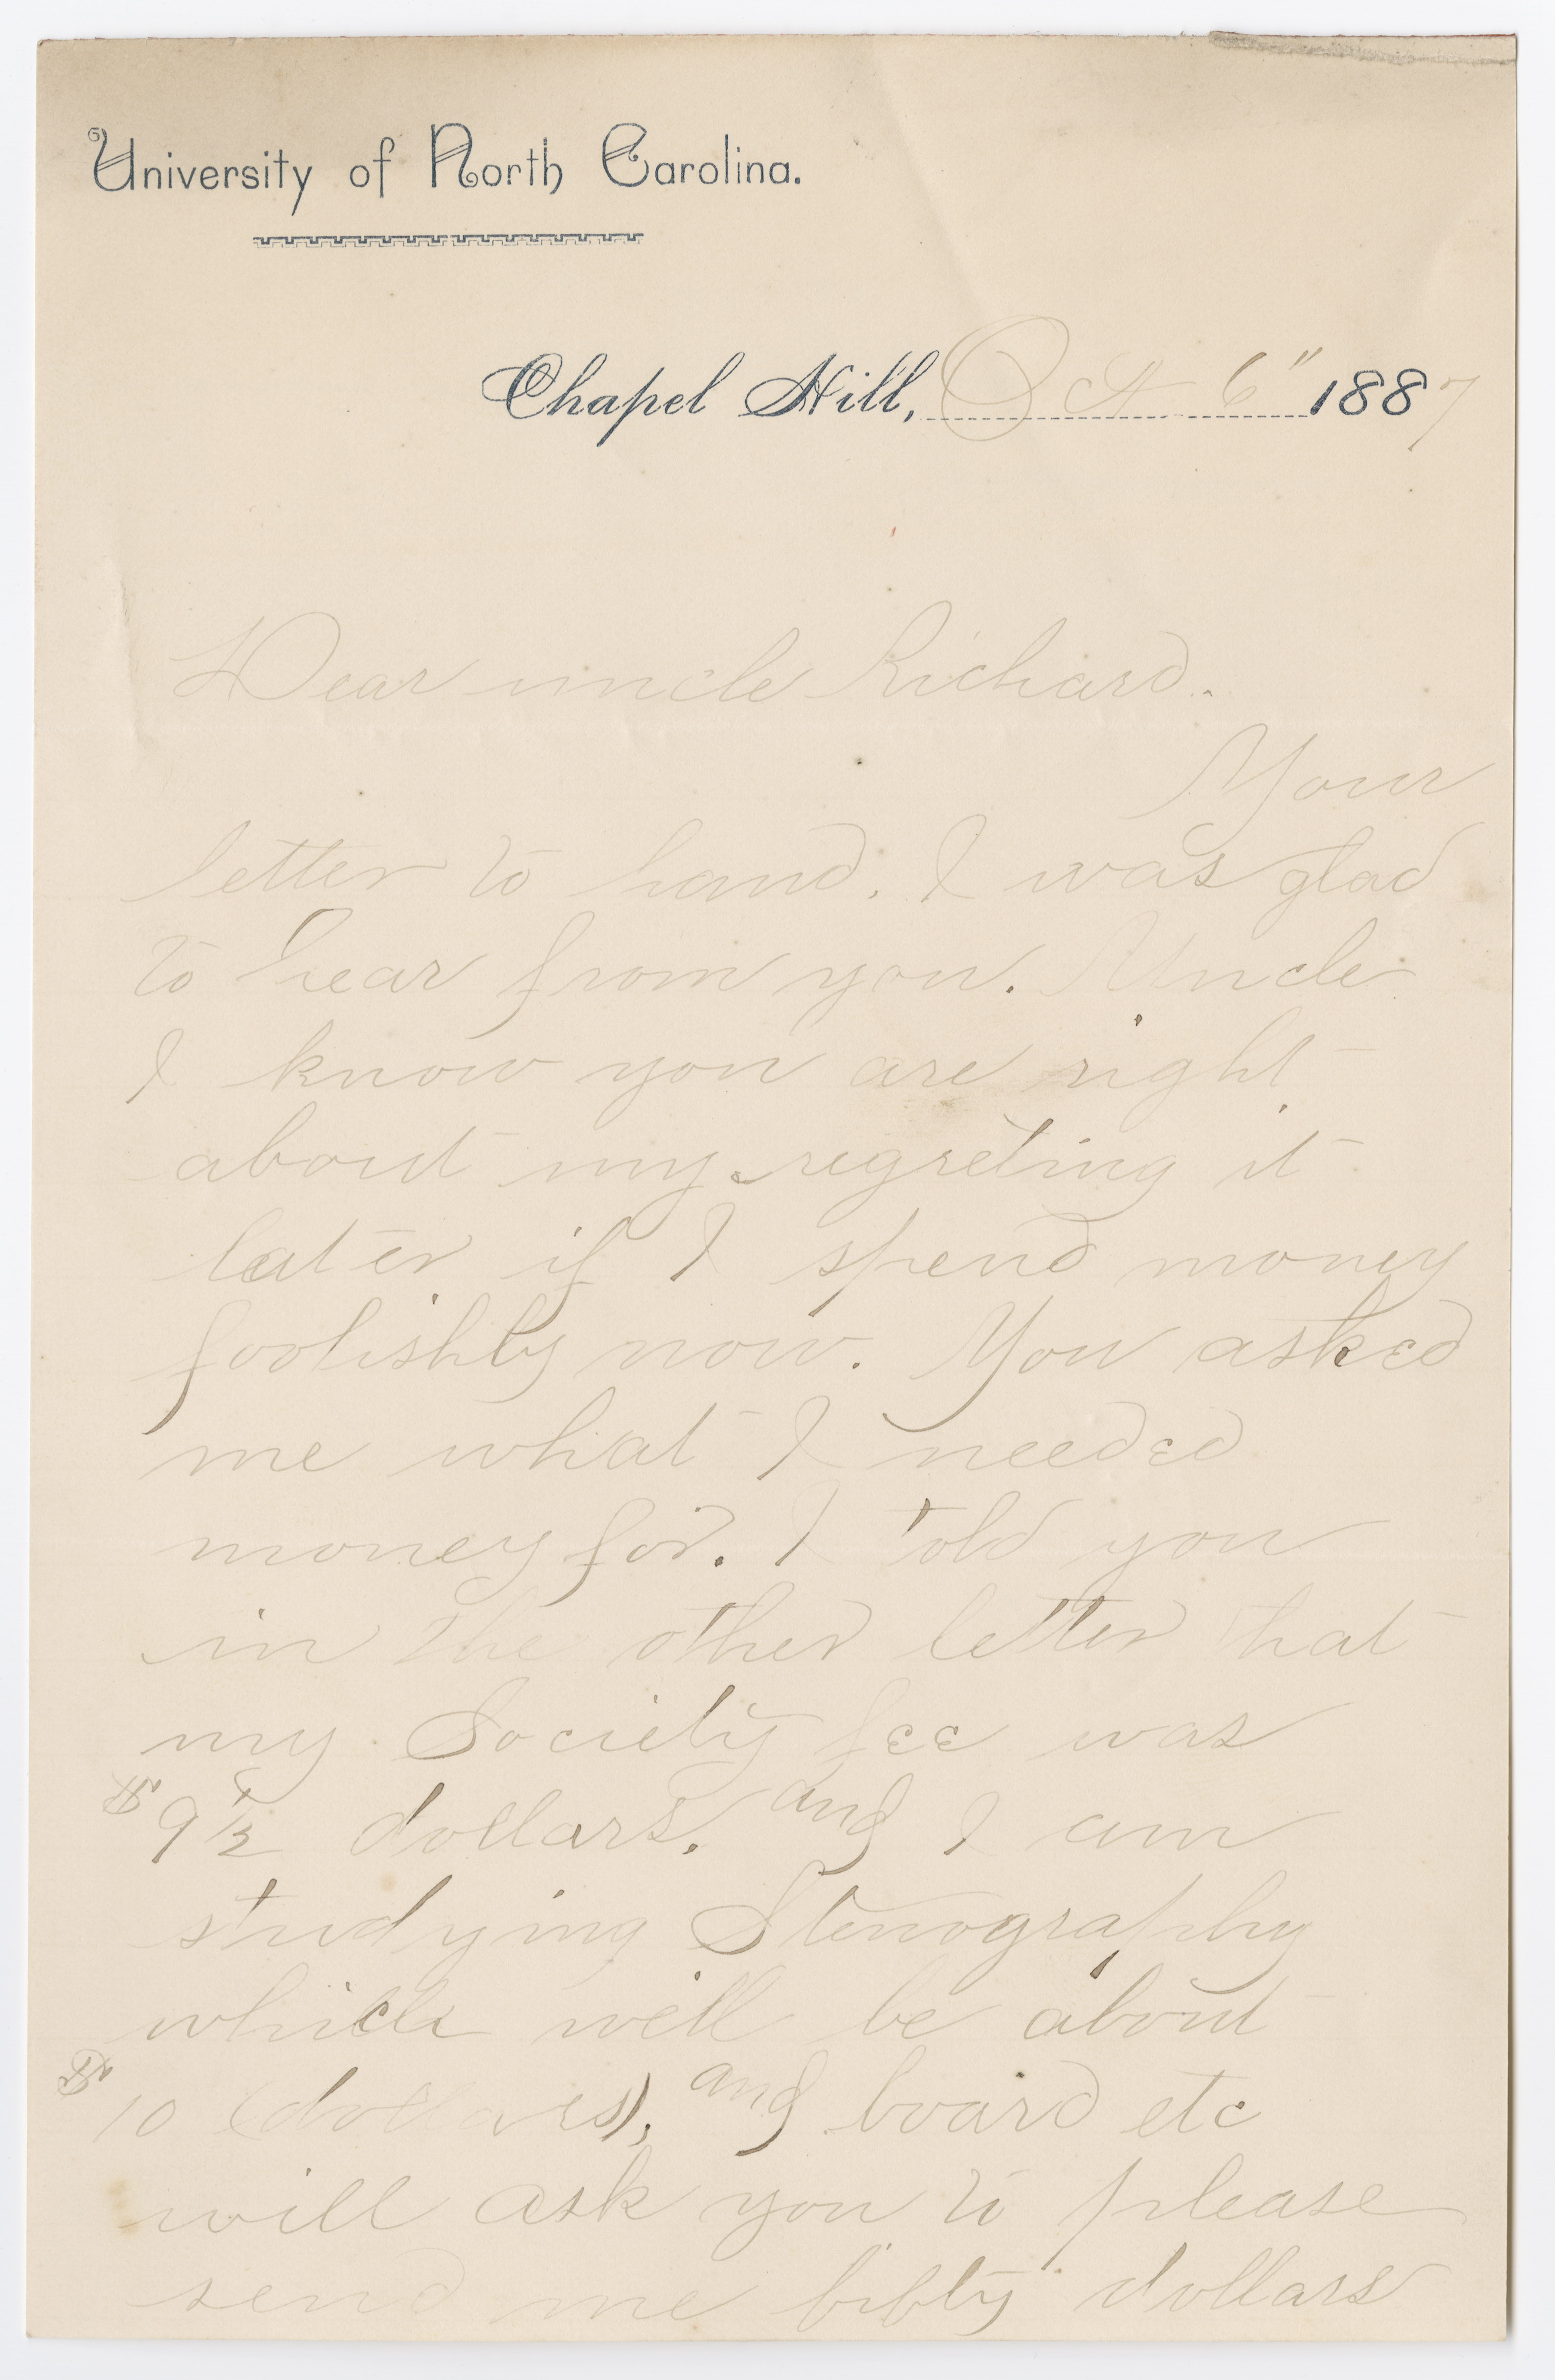 University of North Carolina.
Chapel Hill, Oct 6" 1887
Dear uncle Richard.
Your
letter to hand. I was glad
to hear from you. Uncle
I know you are right
about my regreting it
later if I spend money
foolishly now. You asked
me what I needed
money for. I told you
in the other letter that
my Society fee was
$9 1/2 dollars. and I am
studying Stenography
which will be about
$10 (dollars), and board etc
will ask you to please
send me fifty dollars